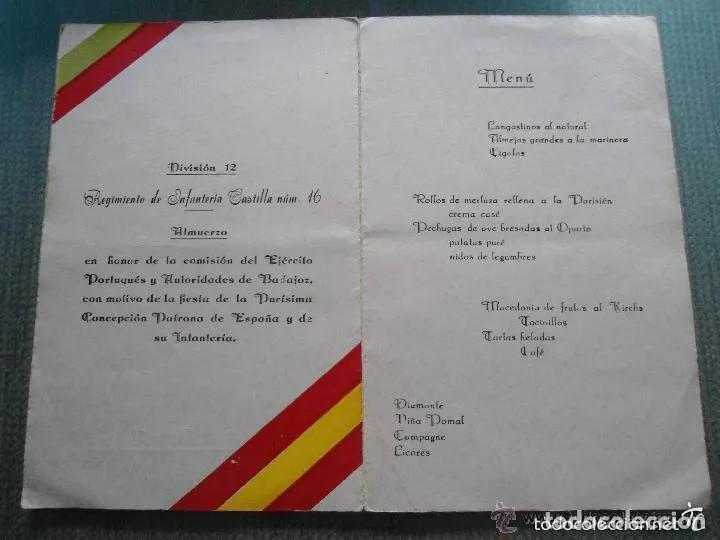 División 12
Regimiento de Infantería Castilla núm. 16
Almuerzo
en honor de la comisión del Ejército
Portugués y Autoridades de Badajoz,
con motivo de la fiesta de la Purísima
Concepción Patrona de España y de
su Infantería.
Menú
Langostinos al natural
Almejas grandes a la marinera
Cigalas
Rollos de merluza rellena a la Parisién
crema casé
Pechugas de ave bresadas al Oporto
patatas puré
nidos de legumbres
Macedonia de frutas al Kirchs
Tocinillos
Tartas heladas
Café
Diamante
Viña Pomal
Compagne
Licores
todocoleccion
todocoleccion.net